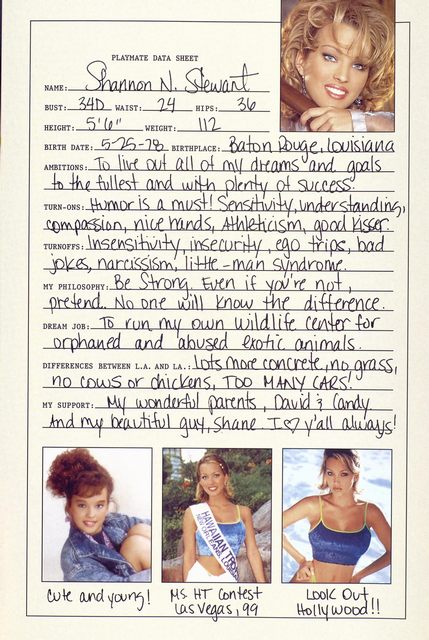 PLAYMATE DATA SHEET
NAME: Shannon N. Stewart
BUST: 34D WAIST: 24 HIPS: 36
HEIGHT: 5'6" WEIGHT: 112
BIRTH DATE: 5-25-78 BIRTHPLACE: Baton Rouge, Louisiana
AMBITIONS: To live out all of my dreams and goals
to the fullest and with plenty of success.
TURN-ONS: Humor is a must! Sensitivity, understanding,
compassion, nice hands, Athleticism, good kisser.
TURNOFFS: Insensitivity, insecurity, ego trips, bad
jokes, narcissism, little-man syndrome.
MY PHILOSOPHY: Be Strong. Even if you're not,
pretend. No one will know the difference.
DREAM JOB: To run my own wildlife center for
orphaned and abused exotic animals.
DIFFERENCES BETWEEN L.A. AND LA.: Lots more concrete, no grass,
no cows or chickens, TOO MANY CARS!
MY SUPPORT: My wonderful parents, David & Candy
And my beautiful guy, Shane. I ♡ y'all always!
HAWAIIAN TRO
NEW ORLEANS, LOUISI
Cute and young!
Ms HT Contest
Las Vegas, 99
Look Out
Hollywood!!